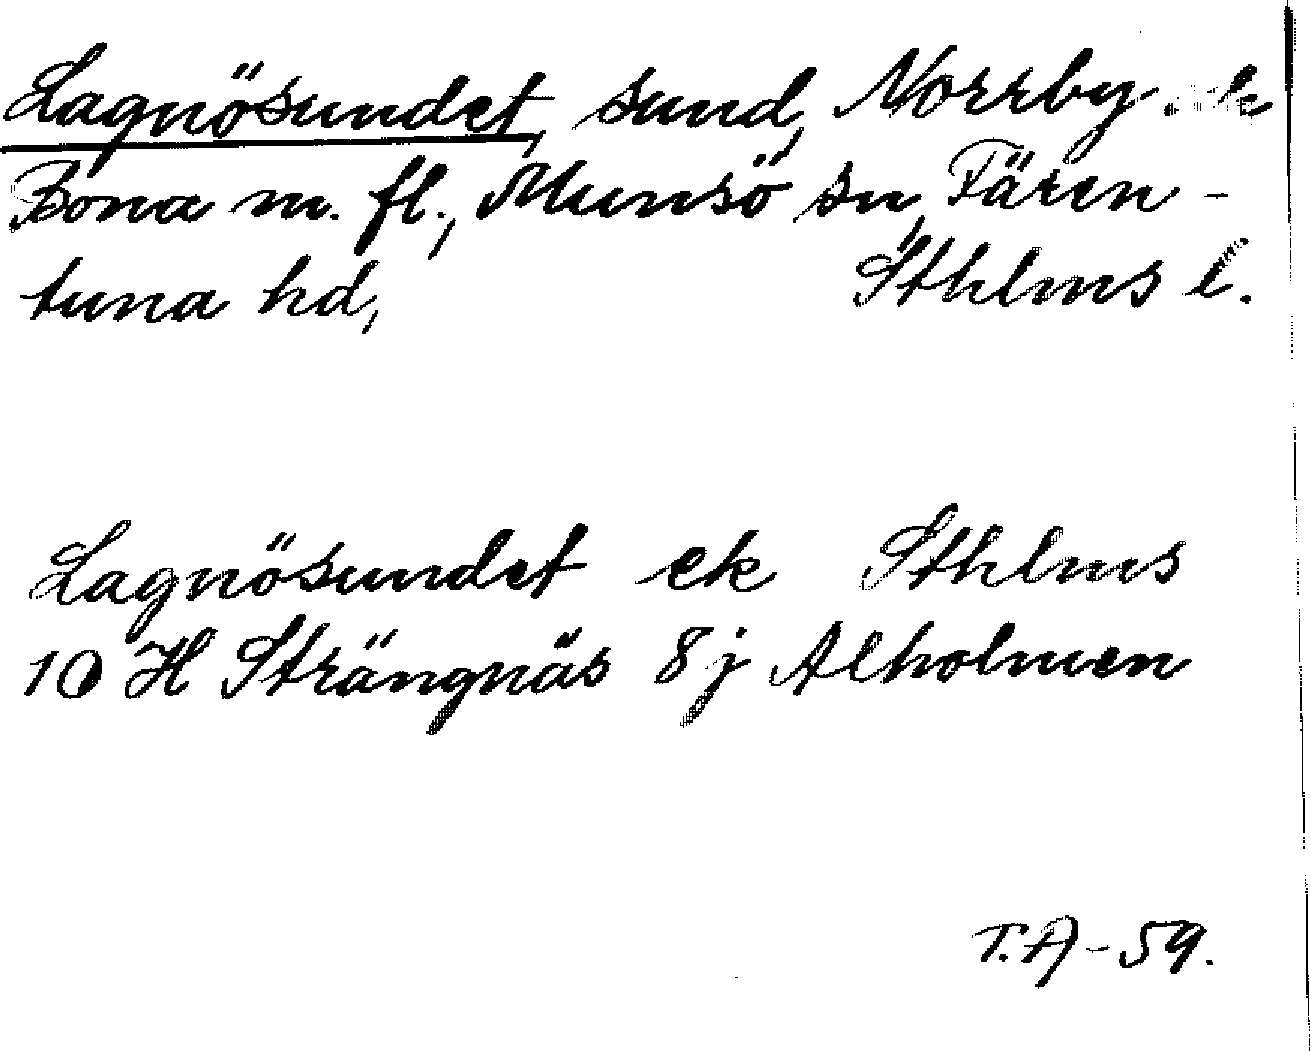 Lagnösundet, sund, Norrby
Bona m. fl., Munsö sn, Fären-
tuna hd, Sthlms l.
Lagnösundet ek Sthlms
10 H Strängnäs 8j Alholmen
T.A-59.